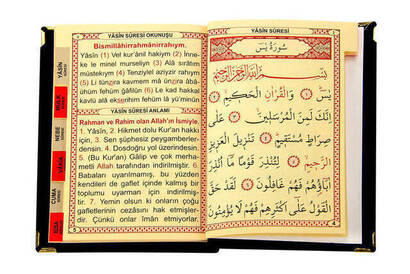 YÂSİN SÛRESİ OKUNUŞU
Bismillâhirrahmânirrahıym.
1) Yâsîn(1) Vel kur'ânil hakiym (2) İnne-
ke le minel murseliyn (3) Alâ sırâtın
müstekıym (4) Tenziylel aziyzir rahıym
(5) Li tünzira kavmen mâ ünzira âbâ-
ühüm fehüm ğâfilûn (6) Le kad hakkal
kavlü alâ ekserihim fehüm lâ yu'minûn
YÂSİN SÛRESİ ANLAMI
Rahman ve Rahim olan Allah'ın İsmiyle.
1. Yâsîn, 2. Hikmet dolu Kur'an hakkı
için, 3. Sen şüphesiz peygamberler-
densin. 4. Dosdoğru yol üzerindesin.
5. (Bu Kur'an) Gâlip ve çok merha-
metli Allah tarafından indirilmiştir. 6.
Babaları uyarılmamış, bu yüzden
kendileri de gaflet içinde kalmış bir
toplumu uyarman için indirilmiş-
tir. 7. Yemin olsun ki onların çoğu
gafletlerinin cezasını hak etmişler-
dir. Çünkü onlar îman etmiyorlar.
5
YÂSİN
MÜLK
NEBE
VÂKIA
CUMA
YÂSİN SÛRESİ
سُورَةُ يٰسٓ
بِسْمِ اللّٰهِ الرَّحْمٰنِ الرَّحِيمِ
يٰسٓ ﴿١﴾ وَالْقُرْاٰنِ الْحَكِيمِ ﴿٢﴾
اِنَّكَ لَمِنَ الْمُرْسَلِينَ ﴿٣﴾ عَلٰى
صِرَاطٍ مُسْتَقِيمٍ ﴿٤﴾ تَنْزِيلَ الْعَزِيزِ
الرَّحِيمِ ﴿٥﴾ لِتُنْذِرَ قَوْمًا مَٓا اُنْذِرَ
اٰبَٓاؤُهُمْ فَهُمْ غَافِلُونَ ﴿٦﴾ لَقَدْ حَقَّ
الْقَوْلُ عَلٰٓى اَكْثَرِهِمْ فَهُمْ لَا يُؤْمِنُونَ
4